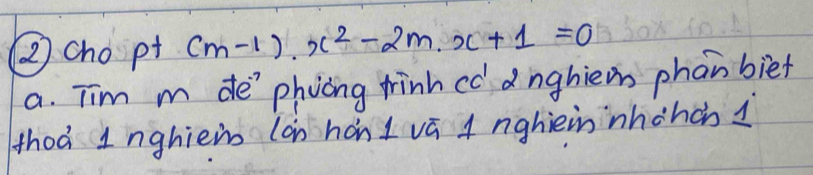 ② Cho pt (m-1).x² - 2m.x + 1 = 0
a. Tìm m để phương trình có 2 nghiệm phân biệt
thoả 1 nghiệm lớn hơn 1 và 1 nghiệm nhỏ hơn 1